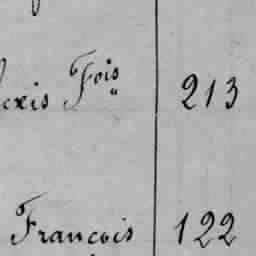 exis Fois 213
Francois 122